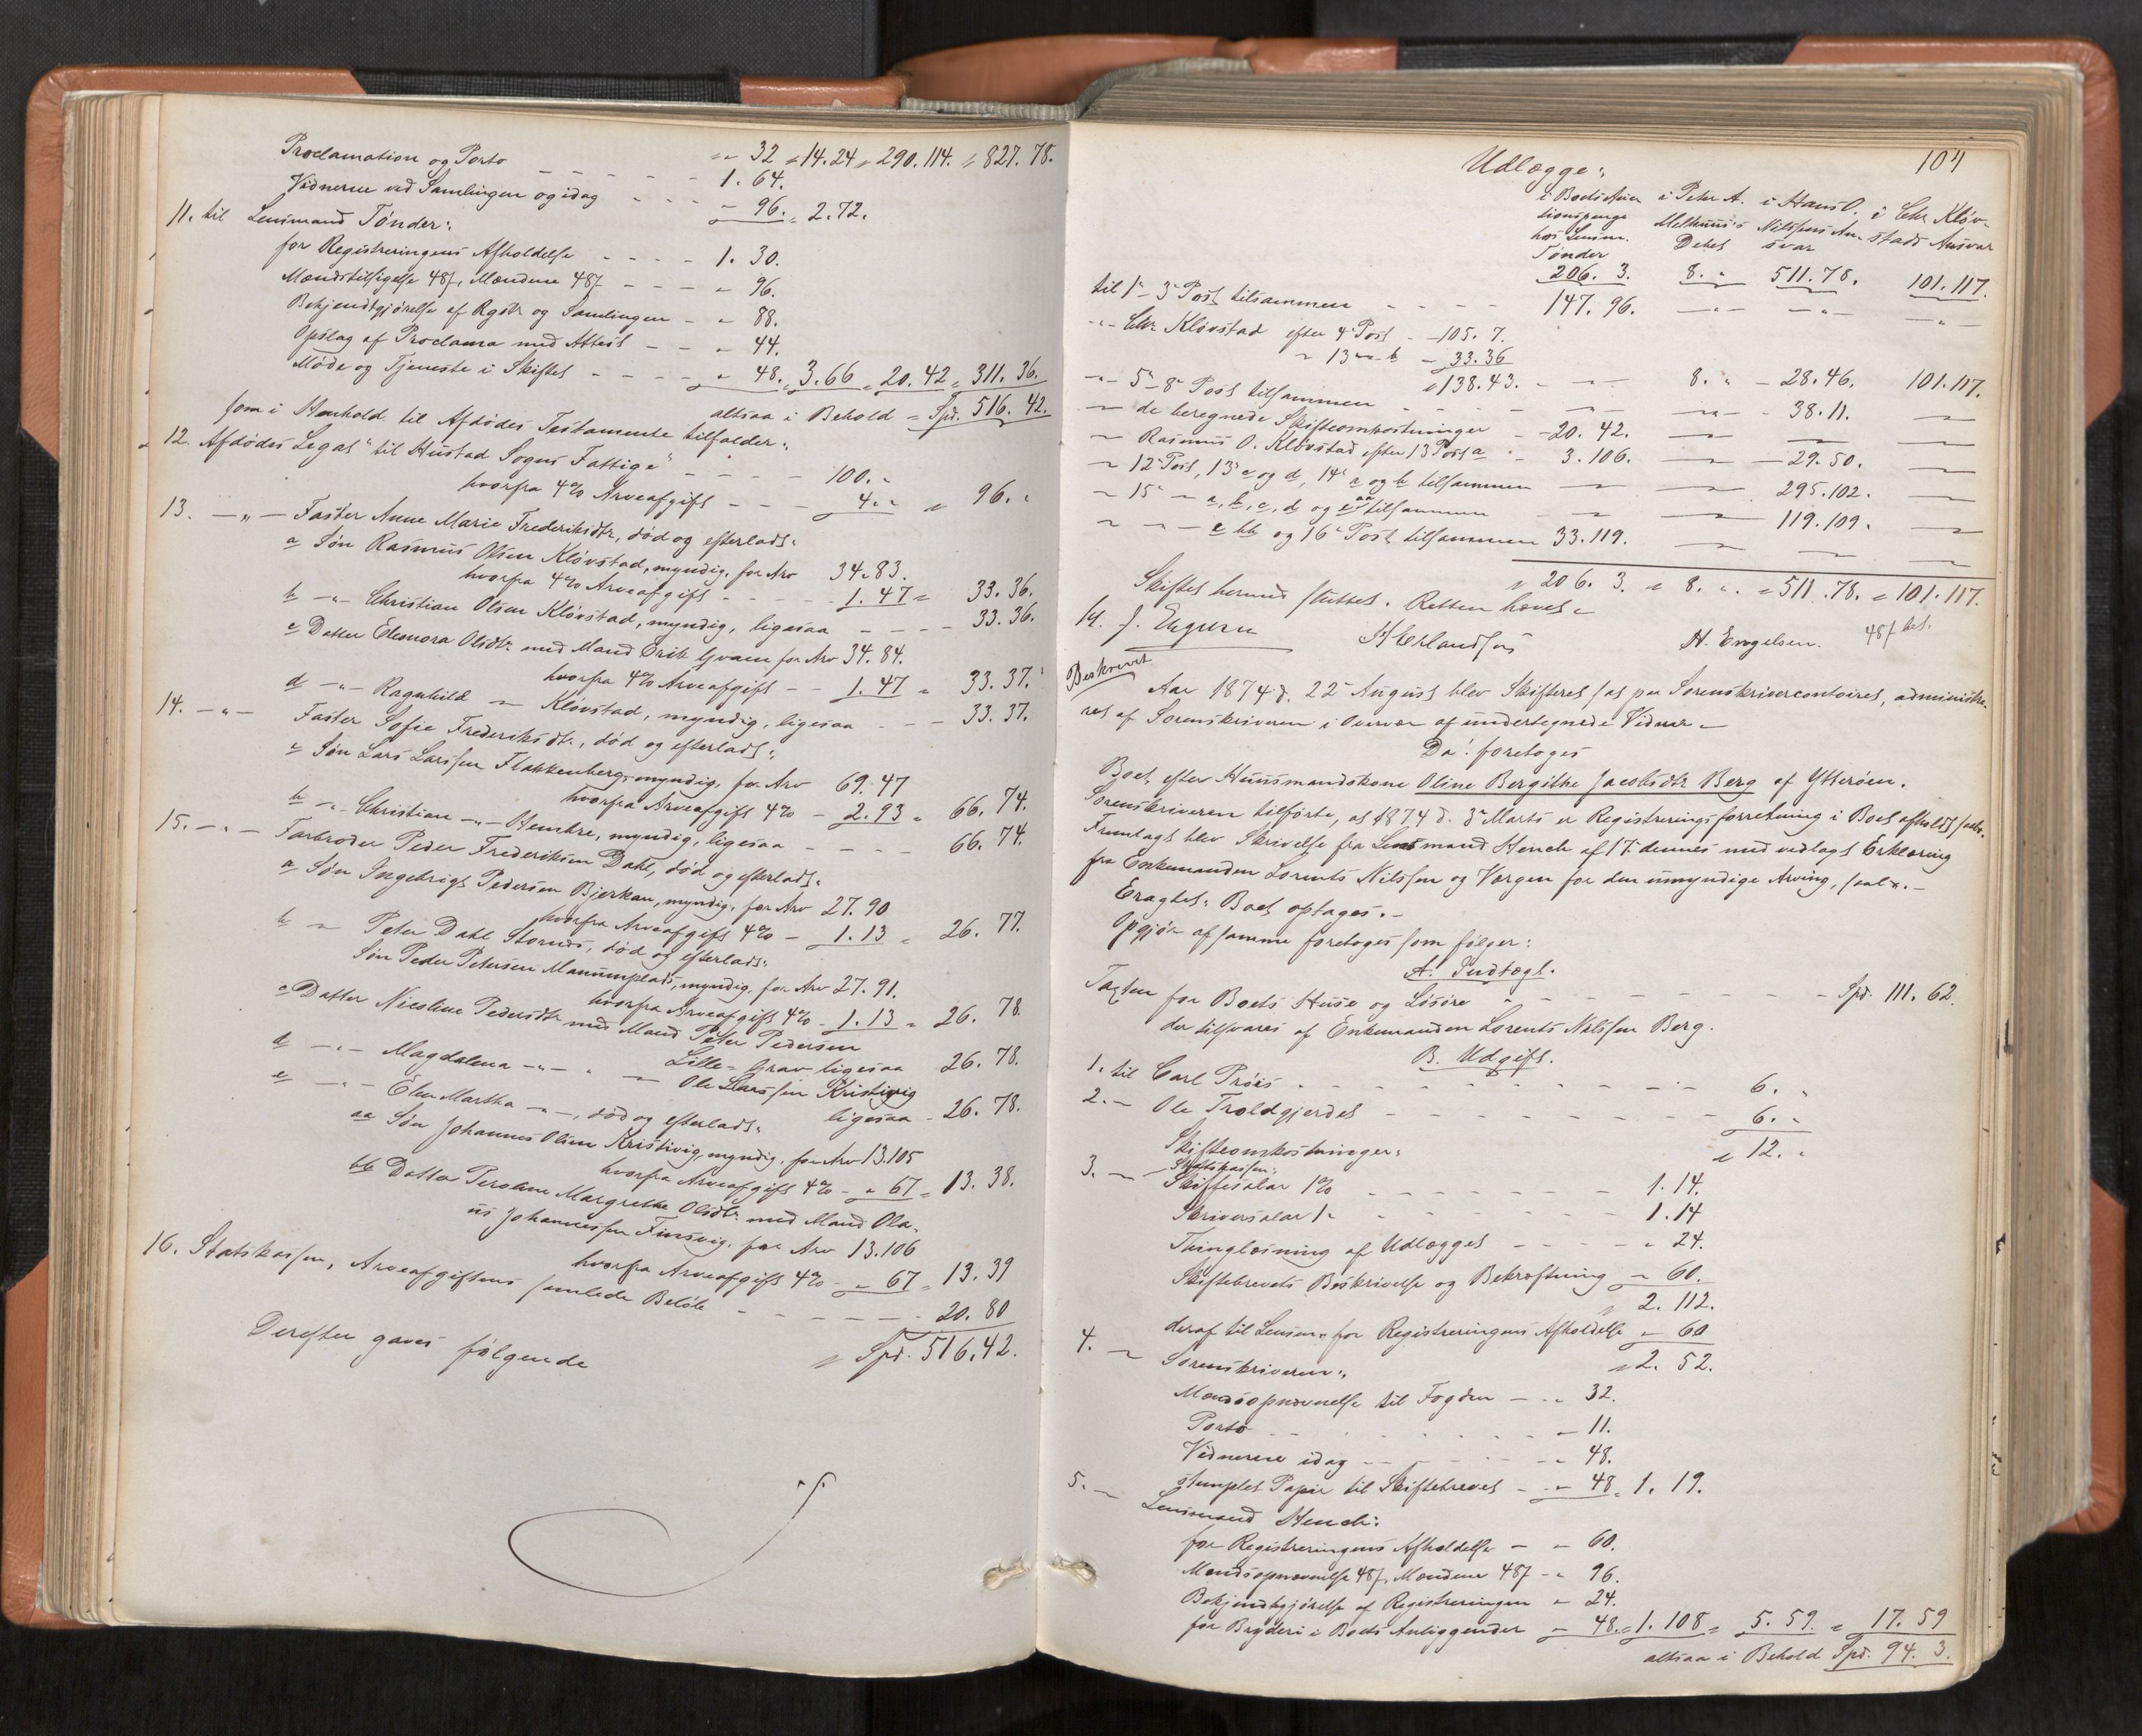 Proclamation og Porto - - - - - " " 32 " 14.24 " 290.114. " 827.78.
Vidnerne ved Samlingen og idag - - - 1. 64.
" 96. " 2.72.
11. til Lensmand Tönder:
for Registreringens Afholdelse - - - - 1. 30.
Mændstilsigelse 48ſ, Mændene 48ſ - - - " 96.
Bekjendtgjörelse af Rgstr og Samlingen - " 88.
Opslag af Proclama med Attest - - " 44.
Möde og Tjeneste i Skiftet - - - - " 48. " 3.66 " 20.42 " 311.36.
altsaa i Behold = Spd. 516.42.
som i Henhold til Afdödes Testamente tilfalder:
12. Afdödes Legat "til Hustad Sogns Fattige" - - - 100. "
hvorfra 4% Arveafgift - - - 4. " " 96. "
13. -"- Faster Anne Marie Frederiksdtr, död og efterladt:
a Sön Rasmus Olsen Klövstad, myndig, for Arv 34.83.
hvorfra 4% Arveafgift - - - - 1.47 = 33.36.
b -"- Christian Olsen Klövstad, myndig, ligesaa - - - - 33.36.
c Datter Eleonora Olsdtr med Mand Erik Qvam for Arv 34.84.
hvorfra 4% Arveafgift - - 1.47 " 33.37.
d -"- Ragnhild -"- Klövstad, myndig, ligesaa - - - 33.37.
14. -"- Faster Sofie Frederiksdtr., död og efterladt:
a Sön Lars Larssen Flakkenberg, myndig, for Arv 69.47
hvorfra Arveafgift 4% - 2.93 " 66.74.
b -"- Christian -"- Hembre, myndig, ligesaa - - - - 66.74.
15. -"- Farbroder Peder Frederiksen Dahl, död og efterladt:
a Sön Ingebrigt Pedersen Bjerkan, myndig, for Arv 27.90
hvorfra Arveafgift 4% - 1.13 " 26.77.
b -"- Peter Dahl Stornes, död og efterladt:
Sön Peder Petersen, myndig, for Arv 27.91.
hvorfra Arveafgift 4% - 1.13 = 26.78.
c Datter Nicoline Pedersdtr med Mand Peter Pedersen
Lille-Grav ligesaa 26.78.
d -"- Magdalena -"- " -"- Ole Larssen Kristivig
ligesaa - 26.78.
e -"- Elen Martha -"-, död og efterladt:
aa Sön Johannes Olsen Kristivig, myndig, for Arv 13.105
hvorfra Arveafgift 4% - " 67 = 13.38.
bb Datter Peroline Margrethe Olsdtr med Mand Ola-
us Johannessen Finsvig, for Arv 13.106
hvorfra Arveafgift 4% - " 67 = 13.39
16. Statskassen, Arveafgiftens samlede Belöb - - - - - 20.80
" Spd. 516.42.
Derefter gaves fölgende
104
Udlægge:
i Bodets Auk- i Peter A. i Hans O. i Chr. Klöv-
tionspenge Melhuus's Nilssens An- stads Ansvar
hos Lensm. Debet svar
Tönder
206. 3. 8. " 511.78. 101.117.
til 1 - 3 Post tilsammen - - - - 147.96. -"- -"- -"-
-"- Chr. Klövstad efter 4 Post - 105.7.
" 13 b - 33.36
" 138.43. - - - 8. " - 28.46. 101.117.
-"- 5 - 8 Post tilsammen - - - - - -"- - 38.11. -
- de beregnede Skifteomkostninger - 20.42. - - -
- Rasmus O. Klövstad efter 13 Post a - 3.106. - - 29.50. -
- 12 Post, 13 c og d, 14 a og b tilsammen - - 295.102. -
- 15 - a, b, c, d og e aa tilsammen - - 119.109. -
- - - e bb og 16 Post tilsammen 33.119. - - -
" 206. 3. " 8. ". " 511.78. " 101.117.
Skiftet hermed sluttet. Retten hævet.
H. Erlandsen N. Engelsen. 48ſ bet.
Beskrevet
Aar 1874 d. 22 August blev Skifteret sat paa Sorenskrivercontoiret, administre-
ret af Sorenskriveren i Overvær af undertegnede Vidner.
Da: foretoges
Boet efter Huusmandskone Oline Bergithe Jacobsdtr Berg af Ytteröen.
Sorenskriveren tilförte, at 1874 d. 3 Marts er Registreringsforretning i Boet afholdt
Fremlagt blev Skrivelse fra Lensmand Hench af 17. dennes med vedlagt Erklæring
fra Enkemanden Lorents Nilssen og Værgen for den umyndige Arving,
Eragtet: Boet optages. -
Opgjör af samme foretoges som fölger:
A. Indtægt.
Taxten for Boets Huse og Lösöre - - - - - - - - Spd. 111.62.
der tilsvares af Enkemanden Lorents Nilssen Berg.
B. Udgift.
1. til Carl Pröis - - - - - - - - 6. "
2. - Ole Troldgjerdet - - - - - - - 6. "
" 12. "
Skifteomkostninger:
3. - Statskassen:
Skiftesalar 1% - - - - - - 1.14.
Skriversalar 1 - - - - - - 1.14
Thinglæsning af Udlægget - - - - " 24.
Skiftebrevets Beskrivelse og Bekræftning - 60.
" 2.112.
deraf til Lensm. for Registreringens Afholdelse - 60
" 2.52.
4. - Sorenskriveren:
Mændsopnævnelse til Fogden - - " 32.
Porto - - - - - - - - 11.
Vidnerne idag - - - - - " 48.
stemplet Papir til Skiftebrevet - - " 48 " 1.19.
5. - Lensmand Hench:
for Registreringens Afholdelse - - 60.
Mændsopnævnelse 48ſ, Mændene 48ſ - " 96.
Bekjendtgjörelse af Registreringen - 24.
for Bryderi i Boets Anliggender - 48. " 1.108 " 5.59. " 17.59
altsaa i Behold Spd. 94.3.